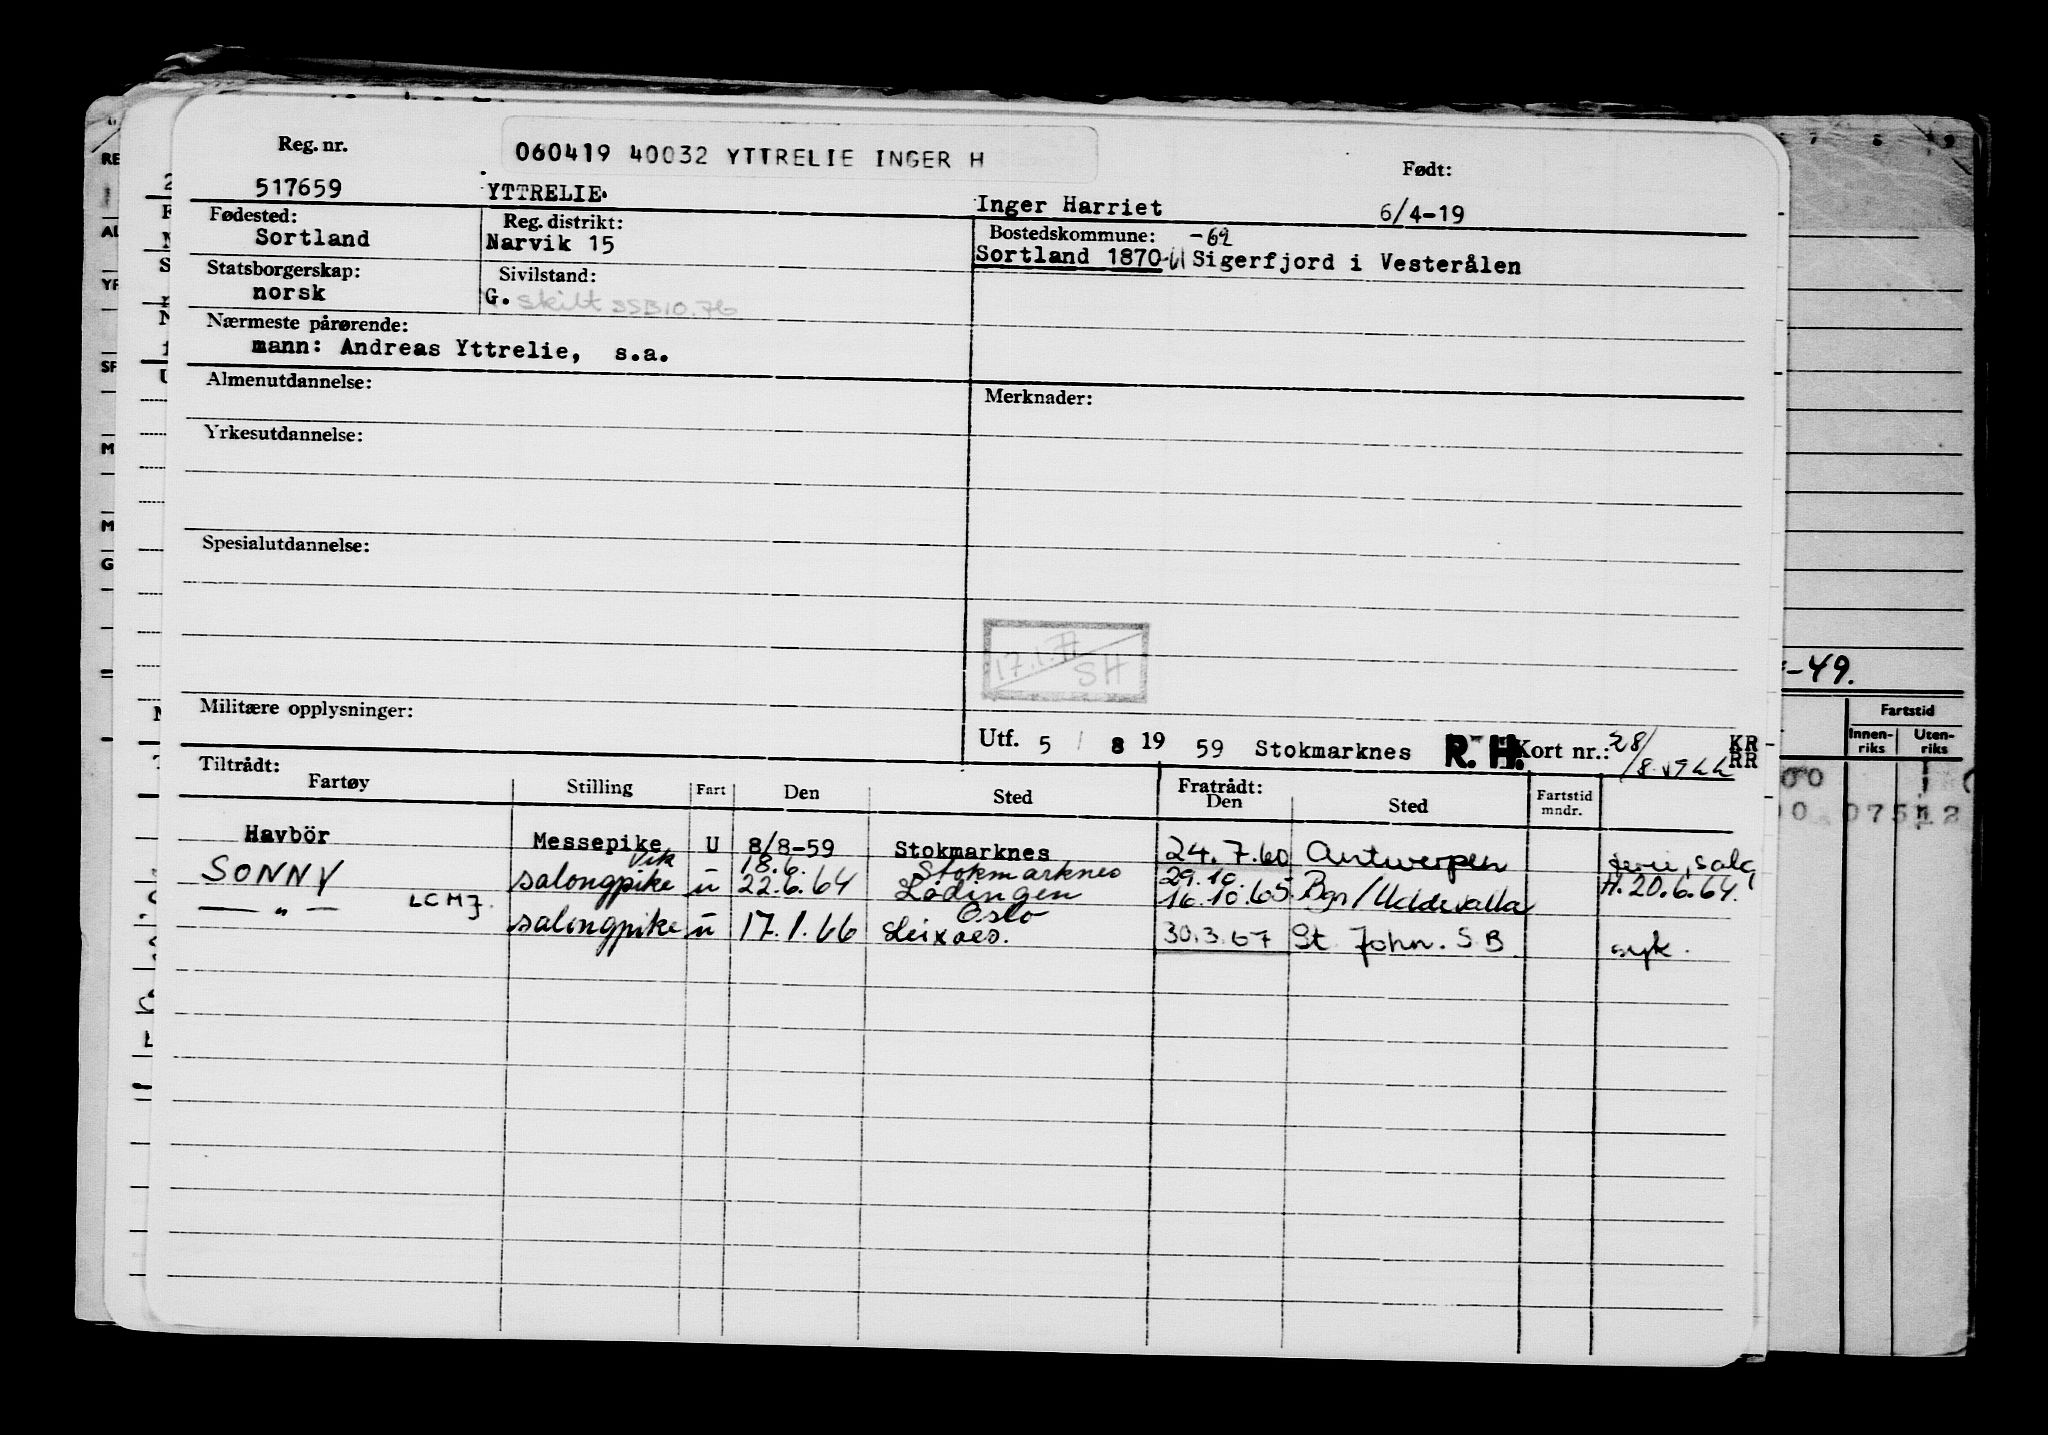 060419 40032 YTTRELIE INGER H
Reg. nr. Født:
517659 YTTRELIE Inger Harriet 6/4-19
Fødested: Reg. distrikt: Bostedskommune: -69
Sortland Narvik 15 Sortland 1870 Sigerfjord i Vesterålen
Statsborgerskap: Sivilstand:
norsk G. skilt SSB 10.76
Nærmeste pårørende:
mann: Andreas Yttrelie, s.a.
Almenutdannelse: Merknader:
Yrkesutdannelse:
Spesialutdannelse:
17.1.77
SH
-49.
Militære opplysninger:
Utf. 5 / 8 19 59 Stokmarknes R. H. Kort nr.: 28/ KR
RR
Fartstid
Innen-riks Uten-riks
Tiltrådt: Fratrådt:
Fartøy Stilling Fart Den Sted Den Sted Fartstid mndr.
Havbör Messepike U 8/8-59 Stokmarknes 24.7.60 Antwerpen
Vik 18.6. Stokmarknes 29.10.
SONNY salongpike u 22.6.64 Lødingen 16.10.65 Bgn/Uddevalla H. 20.6.64.
Oslo
— " — LCMJ. salongpike u 17.1.66 Leixoes. 30.3.67 St. John. S B syk.